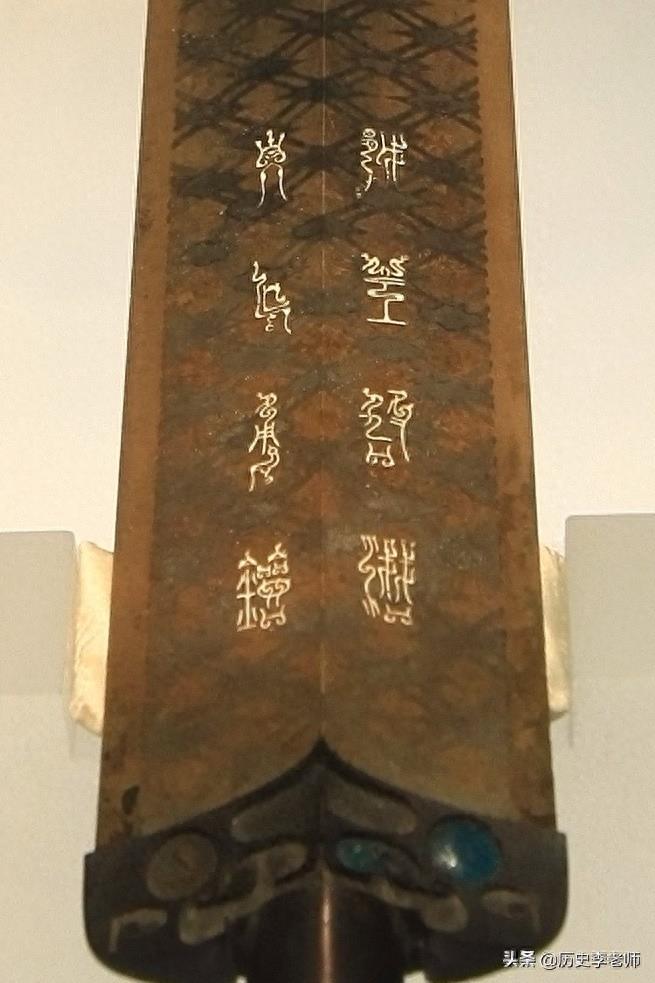 越王鳩淺
自乍用鐱
头条 @历史李老师